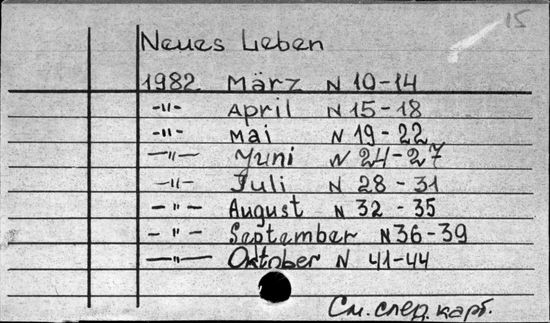 15
Neues Leben
1982 März N 10-14
-"- April N 15-18
-"- Mai N 19-22
-"- Juni N 24-27
-"- Juli N 28-31
-"- August N 32-35
-"- September N 36-39
-"- Oktober N 41-44
См. след. карт.